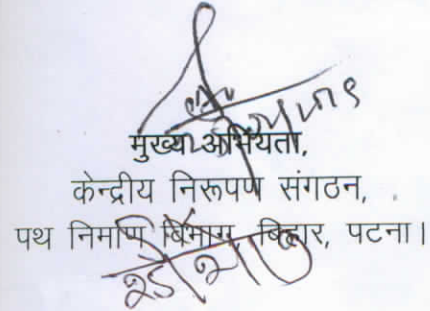 मुख्य अभियंता,
केन्द्रीय निरूपण संगठन,
पथ निर्माण विभाग, बिहार, पटना।